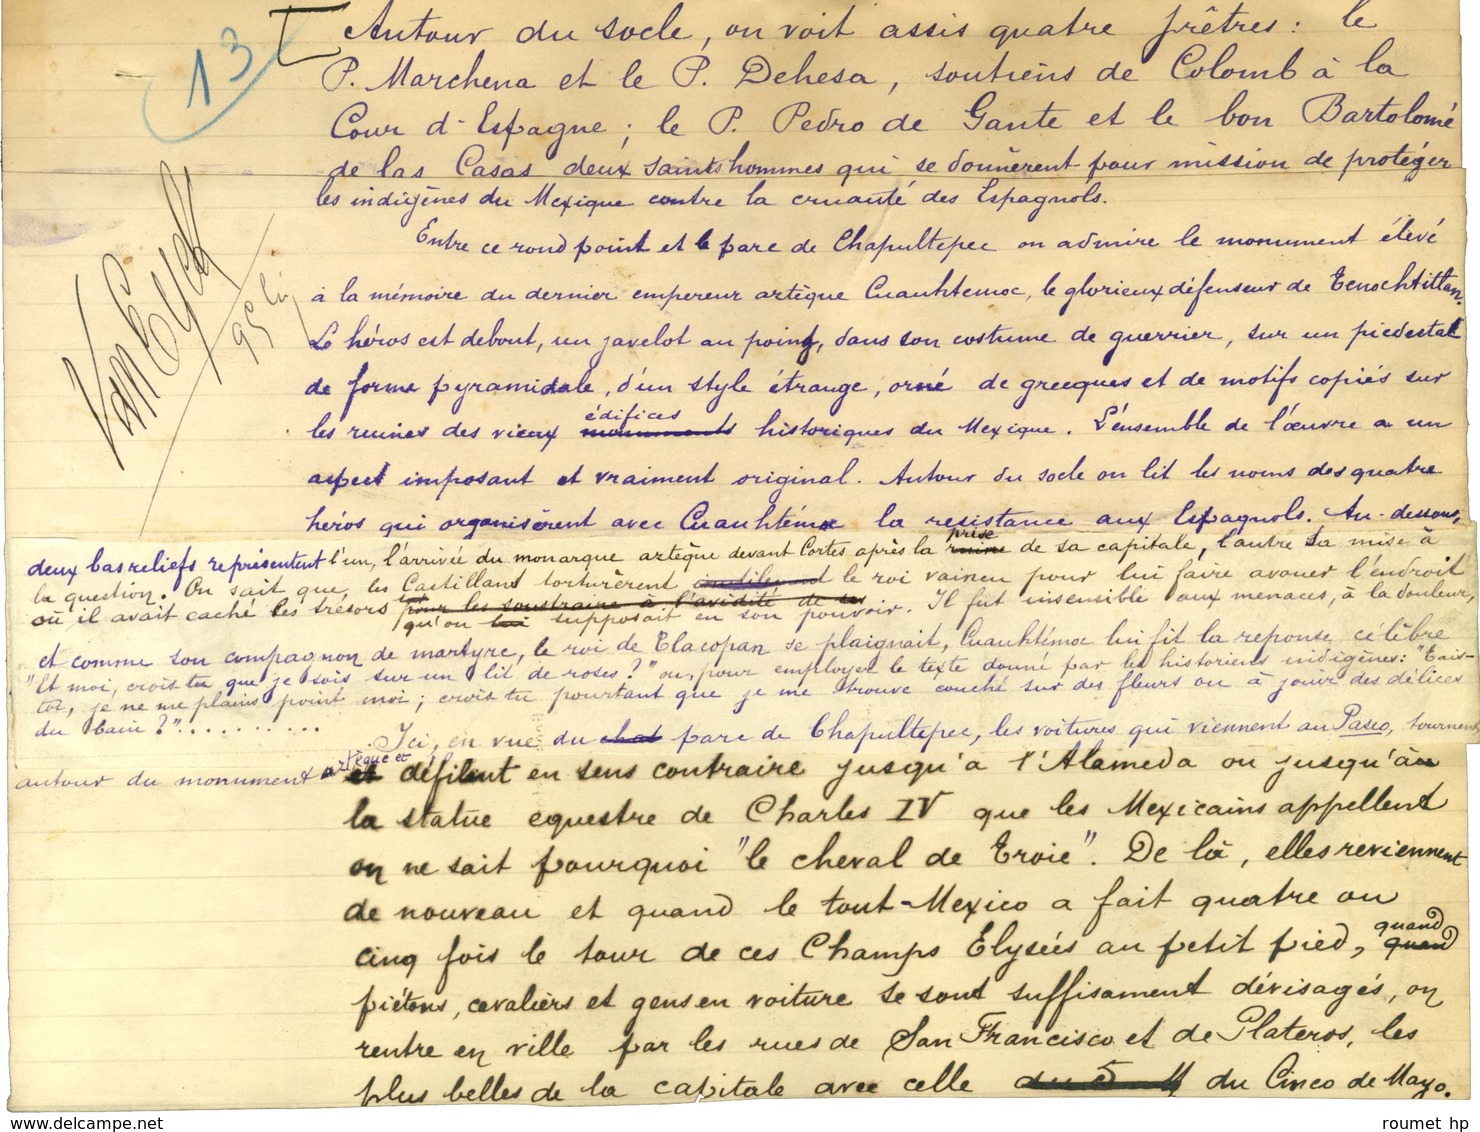 13
Autour du socle, on voit assis quatre prêtres : le
P. Marchena et le P. Dehesa, soutiens de Colomb à la
Cour d'Espagne ; le P. Pedro de Gante et le bon Bartolomé
de las Casas deux saints hommes qui se donnèrent pour mission de protéger
les indigènes du Mexique contre la cruauté des Espagnols.
Entre ce rond point et le parc de Chapultepec on admire le monument élevé
à la mémoire du dernier empereur aztèque Cuauhtemoc, le glorieux défenseur de Tenochtittan.
Le héros est debout, un javelot au poing, dans son costume de guerrier, sur un piedestal
de forme pyramidale, d'un style étrange, orné de grecques et de motifs copiés sur
édifices
les ruines des vieux monuments historiques du Mexique. L'ensemble de l'œuvre a un
aspect imposant et vraiment original. Autour du socle on lit les noms des quatre
héros qui organisèrent avec Cuauhtémoc la resistance aux Espagnols. Au-dessous,
prise
deux bas reliefs représentent l'un, l'arrivée du monarque aztèque devant Cortes après la ruine de sa capitale, l'autre sa mise à
la question. On sait que, les Castillans torturèrent le roi vaincu pour lui faire avouer l'endroit
où il avait caché les trésors pour les soustraire à l'avidité de ses
qu'on lui supposait en son pouvoir. Il fut insensible aux menaces, à la douleur,
et comme son compagnon de martyre, le roi de Tlacopan se plaignait, Cuauhtémoc lui fit la reponse célèbre
"Et moi, crois tu que je sois sur un lit de roses ?" ou, pour employer le texte donné par les historiens indigènes : "Tais-
toi, je ne me plains point moi ; crois tu pourtant que je me trouve couché sur des fleurs ou à jouir des délices
du bain ?"..........
Ici, en vue du parc de Chapultepec, les voitures qui viennent au Paseo, tournent
autour du monument aztèque et
et défilent en sens contraire jusqu'à l'Alameda ou jusqu'à
la statue equestre de Charles IV que les Mexicains appellent
on ne sait pourquoi "le cheval de Troie". De là, elles reviennent
de nouveau et quand le tout-Mexico a fait quatre ou
quand
cinq fois le tour de ces Champs Elysées au petit pied, quand
piétons, cavaliers et gens en voiture se sont suffisament dévisagés, on
rentre en ville par les rues de San Francisco et de Plateros, les
plus belles de la capitale avec celle du 5 M du Cinco de Mayo.
Van Eyck
95 li
roumet hp